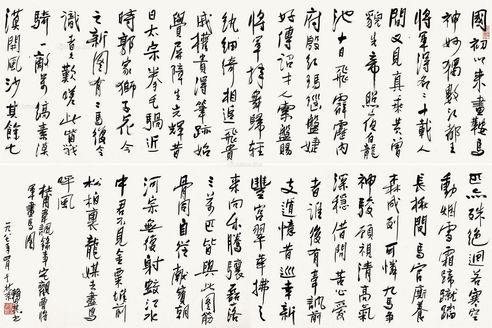 國初以來畫鞍馬
神妙獨數江都王
將軍得名三十載人
間又見真乘黃曾
貌先帝照夜白龍
池十日飛霹靂內
府殷紅瑪瑙盤婕
妤傳詔才人索盤賜
將軍拜舞歸輕
紈細綺相追飛貴
戚權貴得筆跡始
覺屏障生光輝昔
日太宗拳毛騧近
時郭家獅子花今
之新圖有二馬復令
識者久歎嗟此皆戰
騎一敵萬縞素漠
漠開風沙其餘七
匹亦殊絕迥若寒空
動烟雪霜蹄蹴踏
長楸間馬官廝養
森成列可憐九馬爭
神駿顧視清高氣
深穩借問苦心愛
者誰後有韋諷前
支遁憶昔巡幸新
豐宮翠華拂天
來向東騰驤磊落
三萬匹皆與此圖筋
骨同自從獻寶朝
河宗無復射蛟江水
中君不見金粟堆前
松柏裏龍媒去盡鳥
呼風
杜甫韋諷錄事宅觀曹將
軍畫馬圖